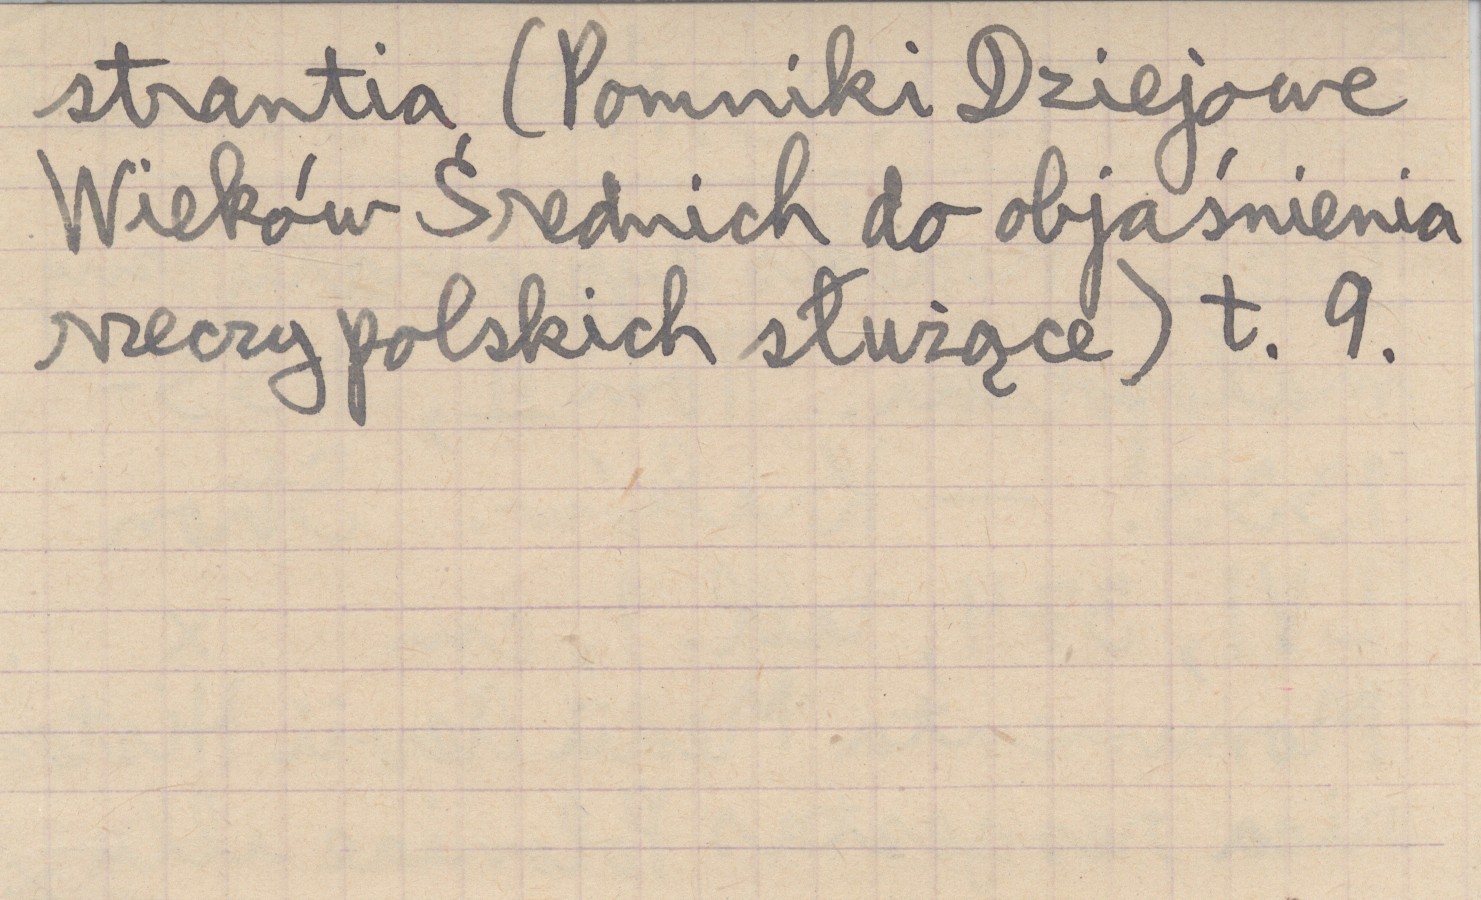 strantia (Pomniki Dziejowe
Wieków Średnich do objaśnienia
rzeczy polskich służące) t. 9.